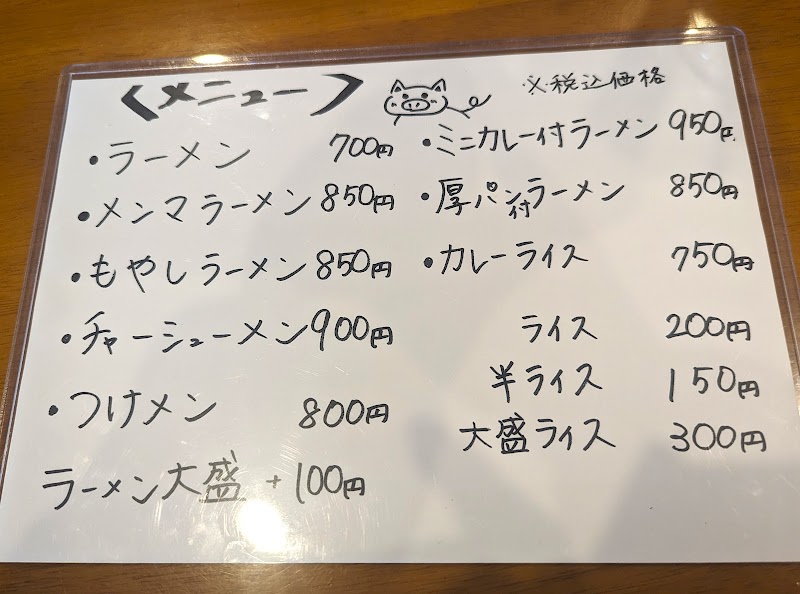 〈メニュー〉
※税込価格
・ラーメン 700円
・メンマラーメン 850円
・もやしラーメン 850円
・チャーシューメン 900円
・つけメン 800円
ラーメン大盛 +100円
・ミニカレー付ラーメン 950円
・厚パン付ラーメン 850円
・カレーライス 750円
ライス 200円
半ライス 150円
大盛ライス 300円